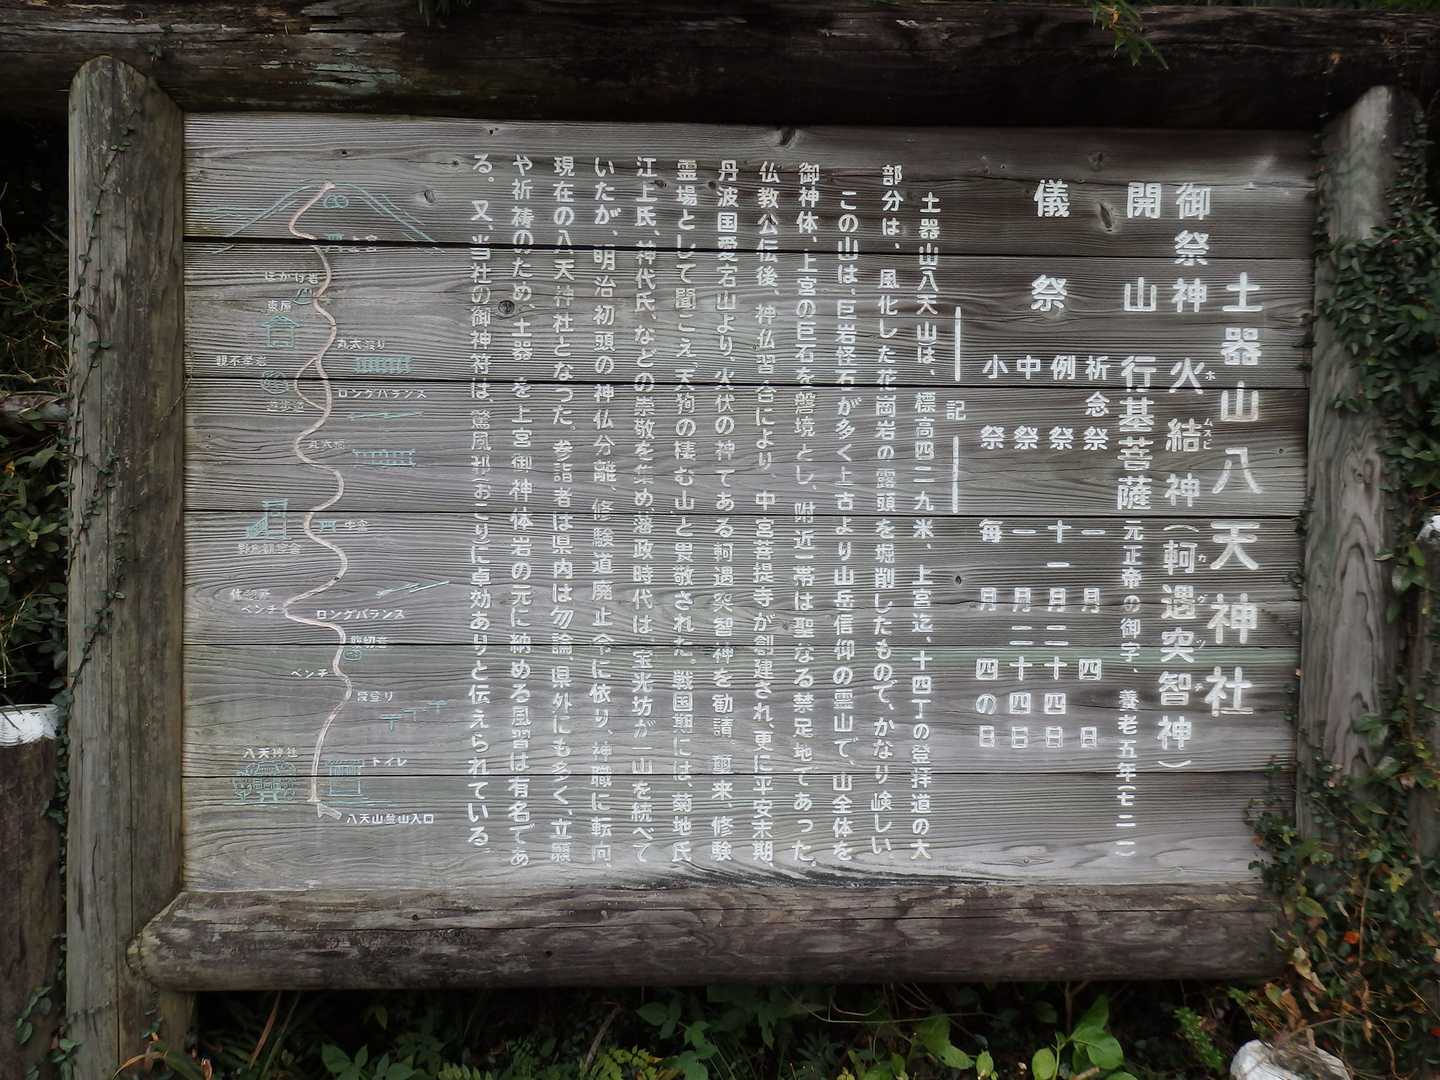 土器山八天神社
御祭神 火結神(軻遇突智神)
ホ ムスビ カグツチ
開山 行基菩薩 元正帝の御字、養老五年(七二一)
儀祭
祈念祭 一月四日
例祭 十一月二十四日
中祭 一月二十四日
小祭 毎月四の日
記
土器山(八天山)は、標高四二九米、上宮迄、十四丁の登拝道の大
部分は、風化した花崗岩の露頭を掘削したもので、かなり険しい。
この山は、巨岩怪石が多く上古より山岳信仰の霊山で、山全体を
御神体、上宮の巨石を磐境とし、附近一帯は聖なる禁足地であった。
仏教公伝後、神仏習合により、中宮菩提寺が創建され、更に平安末期
丹波国愛宕山より、火伏の神である軻遇突智神を勧請。爾来、修験
霊場として聞こえ「天狗の棲む山」と畏敬された。戦国期には、菊地氏
江上氏、神代氏、などの崇敬を集め、藩政時代は、宝光坊が一山を統べて
いたが、明治初頭の神仏分離、修験道廃止令に依り、神職に転向、
現在の八天神社となった。参詣者は県内は勿論、県外にも多く、立願
や祈祷のため、土器を上宮御神体岩の元に納める風習は有名であ
る。又、当社の御神符は、驚風、おこりに卓効ありと伝えられている。
上宮
ほかけ岩
東屋
丸太渡り
親不孝岩
ロングバランス
遊歩道
丸太橋
中宮
野鳥観察舎
ベンチ
ロングバランス
ベンチ
段登り
八天神社
トイレ
八天山登山入口